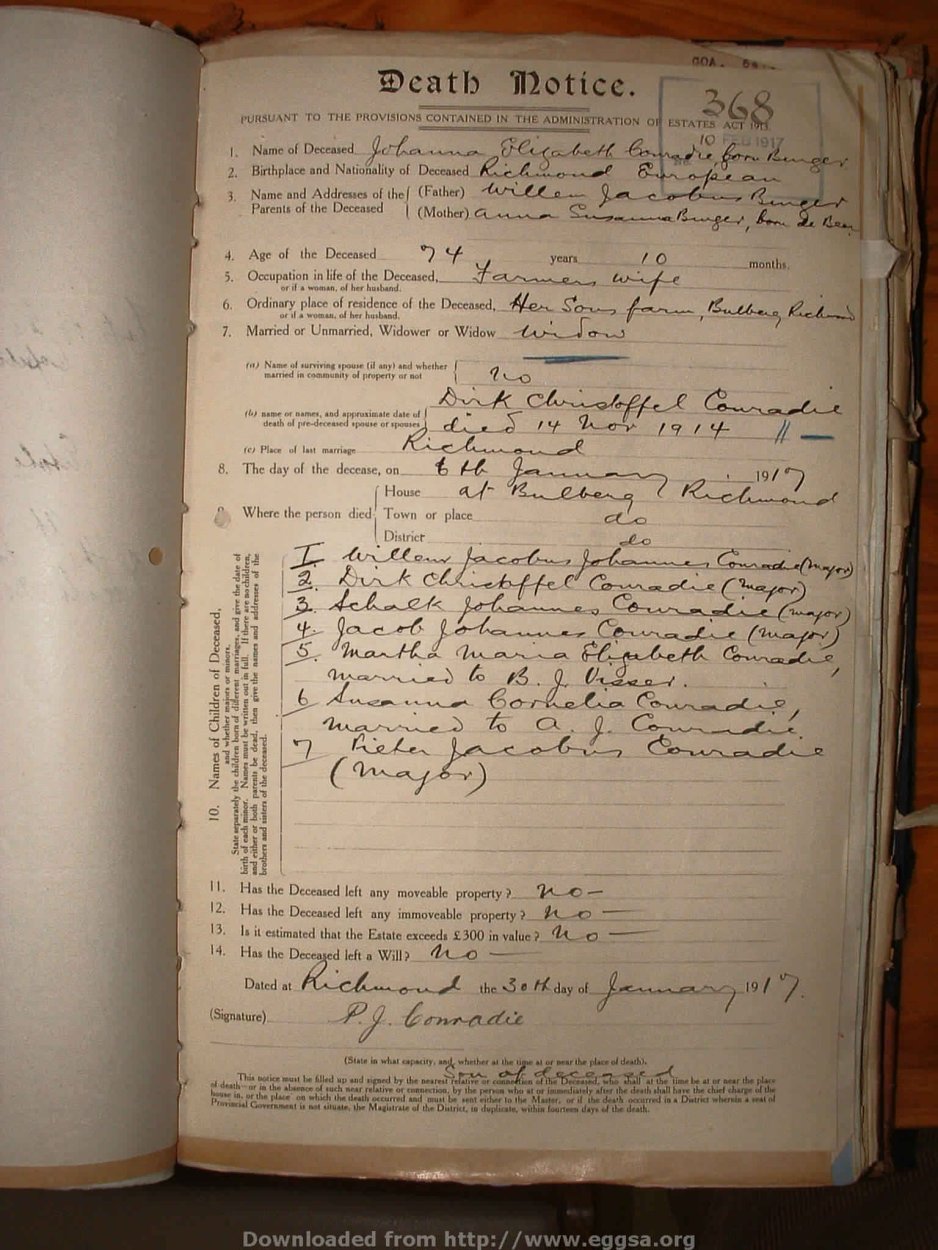 GOA.
Death Notice.
368
PURSUANT TO THE PROVISIONS CONTAINED IN THE ADMINISTRATION OF ESTATES ACT 1913.
10 FEB 1917
1. Name of Deceased Johanna Elizabeth Conradie, born Burger
2. Birthplace and Nationality of Deceased Richmond European
3. Name and Addresses of the Parents of the Deceased
(Father) Willem Jacobus Burger
(Mother) Anna Susanna Burger, born de Beer
4. Age of the Deceased 74 years 10 months.
5. Occupation in life of the Deceased, Farmers wife
or if a woman, of her husband.
6. Ordinary place of residence of the Deceased, Her Sons farm, Bulberg Richmond
or if a woman, of her husband.
7. Married or Unmarried, Widower or Widow Widow
(a) Name of surviving spouse (if any) and whether
married in community of property or not no
Dirk Christoffel Conradie
(b) name or names, and approximate date of
death of pre-deceased spouse or spouses died 14 Nov 1914
(c) Place of last marriage Richmond
8. The day of the decease, on 6th January 1917
House at Bulberg Richmond
9. Where the person died Town or place do
District do
10. Names of Children of Deceased,
and whether majors or minors.
State separately the children born of different marriages, and give the date of
birth of each minor. Names must be written out in full. If there are no children,
and either or both parents be dead, then give the names and addresses of the
brothers and sisters of the deceased.
I Willem Jacobus Johannes Conradie (major)
2. Dirk Christoffel Conradie (major)
3. Schalk Johannes Conradie (major)
4. Jacob Johannes Conradie (major)
5. Martha Maria Elizabeth Conradie,
married to B. J. Visser.
6 Susanna Cornelia Conradie,
married to A. J. Conradie.
7 Pieter Jacobus Conradie
(major)
11. Has the Deceased left any moveable property? No –
12. Has the Deceased left any immoveable property? No –
13. Is it estimated that the Estate exceeds £300 in value? No –
14. Has the Deceased left a Will? No –
Dated at Richmond the 30th day of January 1917.
(Signature) P. J. Conradie
(State in what capacity, and whether at the time at or near the place of death).
Son of deceased
This notice must be filled up and signed by the nearest relative or connection of the Deceased, who shall at the time be at or near the place
of death—or in the absence of such near relative or connection, by the person who at or immediately after the death shall have the chief charge of the
house in, or the place on which the death occurred and must be sent either to the Master, or if the death occurred in a District wherein a seat of
Provincial Government is not situate, the Magistrate of the District, in duplicate, within fourteen days of the death.
Downloaded from http://www.eggsa.org